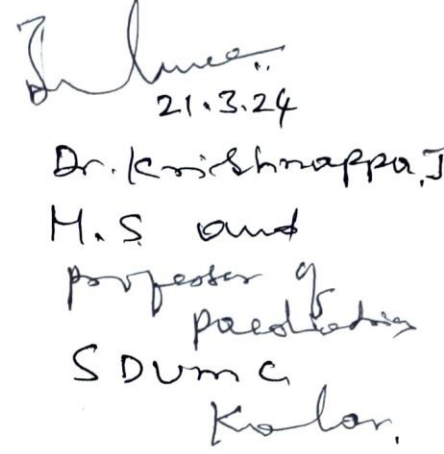 21.3.24
Dr. Krishnappa.J
M.S and
professor of
paediatrics
SDUMC
Kolar.